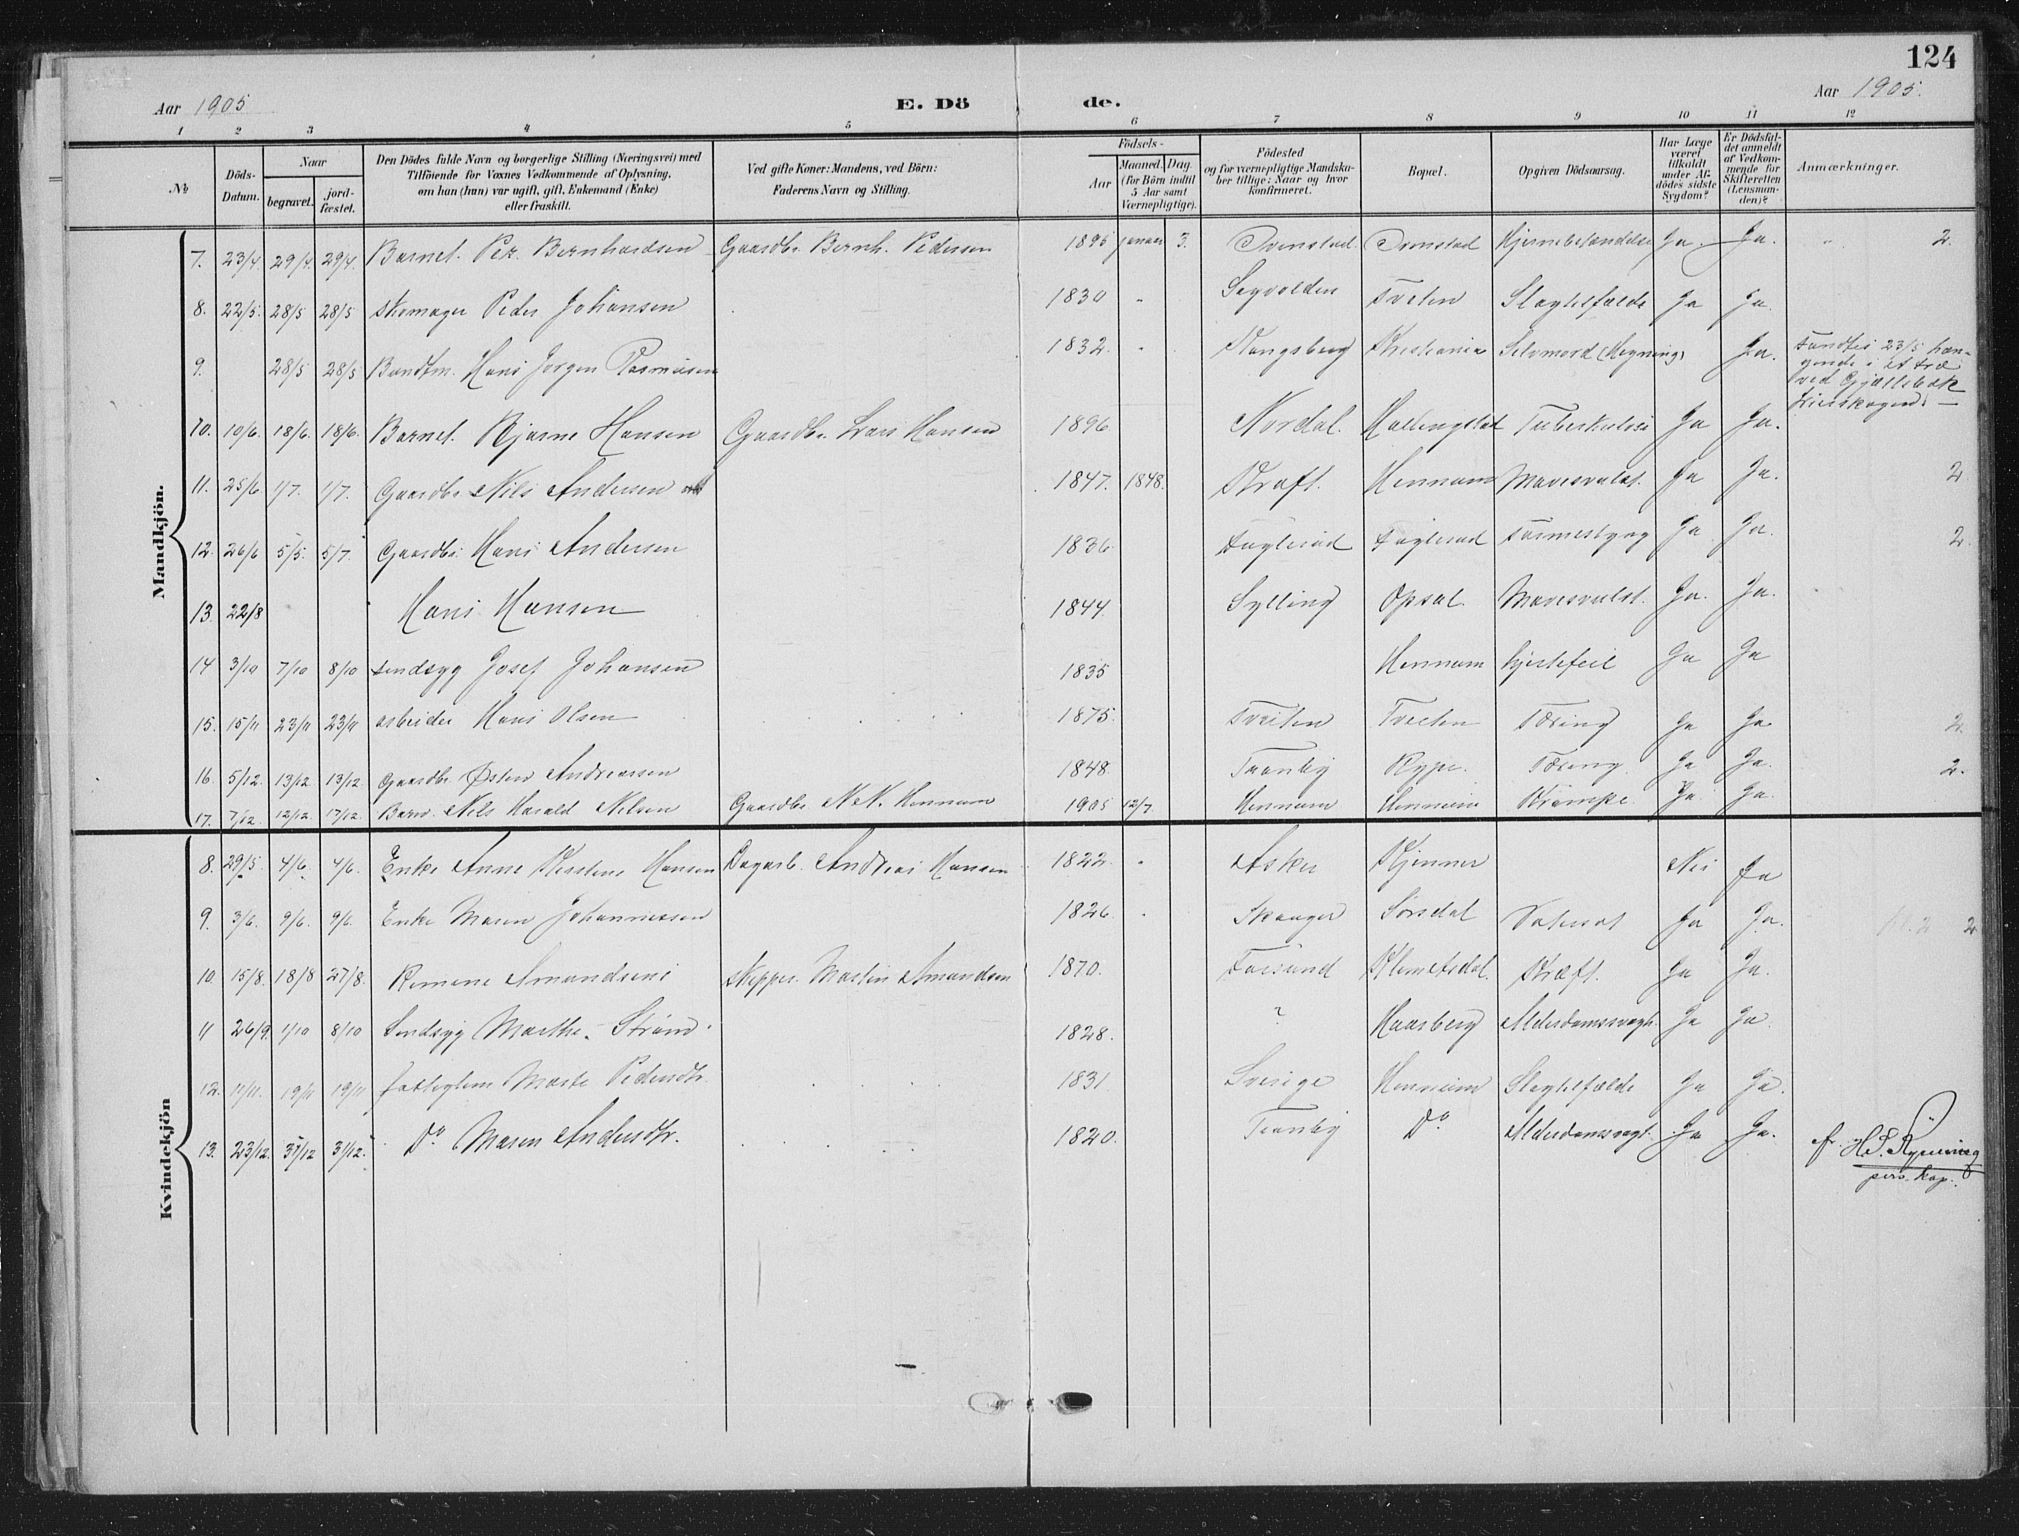 124
Aar 1905
E. Dö
de.
Aar 1905.
1 2 3 4 5 6 7 8 9 10 11 12
No
Döds-Datum.
Naar
begravet.
jord-fæstet.
Den Dödes fulde Navn og borgerlige Stilling (Næringsvei) med
Tilföiende for Voxnes Vedkommende af Oplysning,
om han (hun) var ugift, gift, Enkemand (Enke)
eller fraskilt.
Ved gifte Koner: Mandens, ved Börn:
Faderens Navn og Stilling.
Födsels-
Aar
Maaned.
Dag.
(for Börn indtil
5 Aar samt
Værnepligtige).
Födested
og for værnepligtige Mandska-
ber tillige: Naar og hvor
konfirmeret.
Bopæl.
Opgiven Dödsaarsag.
Har Læge
været
tilkaldt
under Af-
dödes sidste
Sygdom?
Er Dödsfal-
det anmeldt
af Vedkom-
mende for
Skifteretten
(Lensman-
den)?
Anmærkninger.
Mandkjön.
7. 23/4 29/4 29/4 Barnet Per Bernhardsen Gaardbr. Bernh. Pedersen 1895 januar 3. Hjernebetændelse Ja. Ja. 2.
8. 22/5 28/5 28/5 Skomager Peder Johansen 1830 Tveten Slagtilfælde Ja Ja.
9. 28/5 28/5 Hans Jørgen Rasmusen 1832 Kongsberg Kristiania Selvmord (Hægning) Ja. Fundtes 23/5 hæn-
gende i et træ
ved Gjællebæk
10. 10/6 18/6 18/6 Barnet Bjarne Hansen Gaardbr. Lars Hansen 1896 Nordal. Hallingstad Tuberkulose Ja Ja.
11. 25/6 1/7. 1/7. Gaardbr. Nils Andersen 1847. 1848. Kraft. Hennum Mavesvulst. Ja Ja. 2
12. 26/6 5/5. 5/7. Gaardbr. Hans Andersen 1836 Fuglerud Fuglerud Ja Ja. 2.
13. 22/8 Hans Hansen 1844. Sylling Opsal. Mavesvulst. Ja. Ja.
14 3/10 7/10 8/10 Sindsyg Josef Johansen 1835 Hennum hjertefeil Ja Ja
15. 15/11 23/11 23/11 arbeider Hans Olsen 1875. Tveiten Tveiten Tæring Ja Ja 2.
16. 5/12. 13/12 13/12 Gaardbr. Østen Andreassen 1848. Tranby Rype. Tæring. Ja Ja. 2.
17. 7/12. 12/12. 17/12. Barn. Nils Harald Nilsen Gaardbr. N. N. Hennum 1905 12/7. Hennum Hennum Krampe. Ja Ja.
Kvindekjön
8. 29/5. 4/6. 4/6. Enke Anne Kirstine Hansen Dagarb. Andreas Hansen 1822. Asker Kjenner Nei Ja
9. 3/6. 9/6. 9/6. Enke Maren Johannessen 1826. Skauger Sørsdal Vatersot Ja Ja. 2
10. 15/8. 18/8 27/8. Amandsens Skipper. Martin Amandsen 1870. Klemetsdal. Kræft. Ja Ja.
11 26/9. 1/10 8/10 Sindsyg Marthe Strøm. 1828. ? Haasberg Alderdomssvagh. Ja Ja.
12. 11/11. 19/11 19/11 fattiglem Marte Pedersdtr. 1831. Sverige Hennum Slagtilfælde Ja Ja.
13. 23/12. 31/12 31/12. Do Maren Andersdtr. 1820. Tranby Do Alderdomssvagh. Ja Ja.
pers. kap.